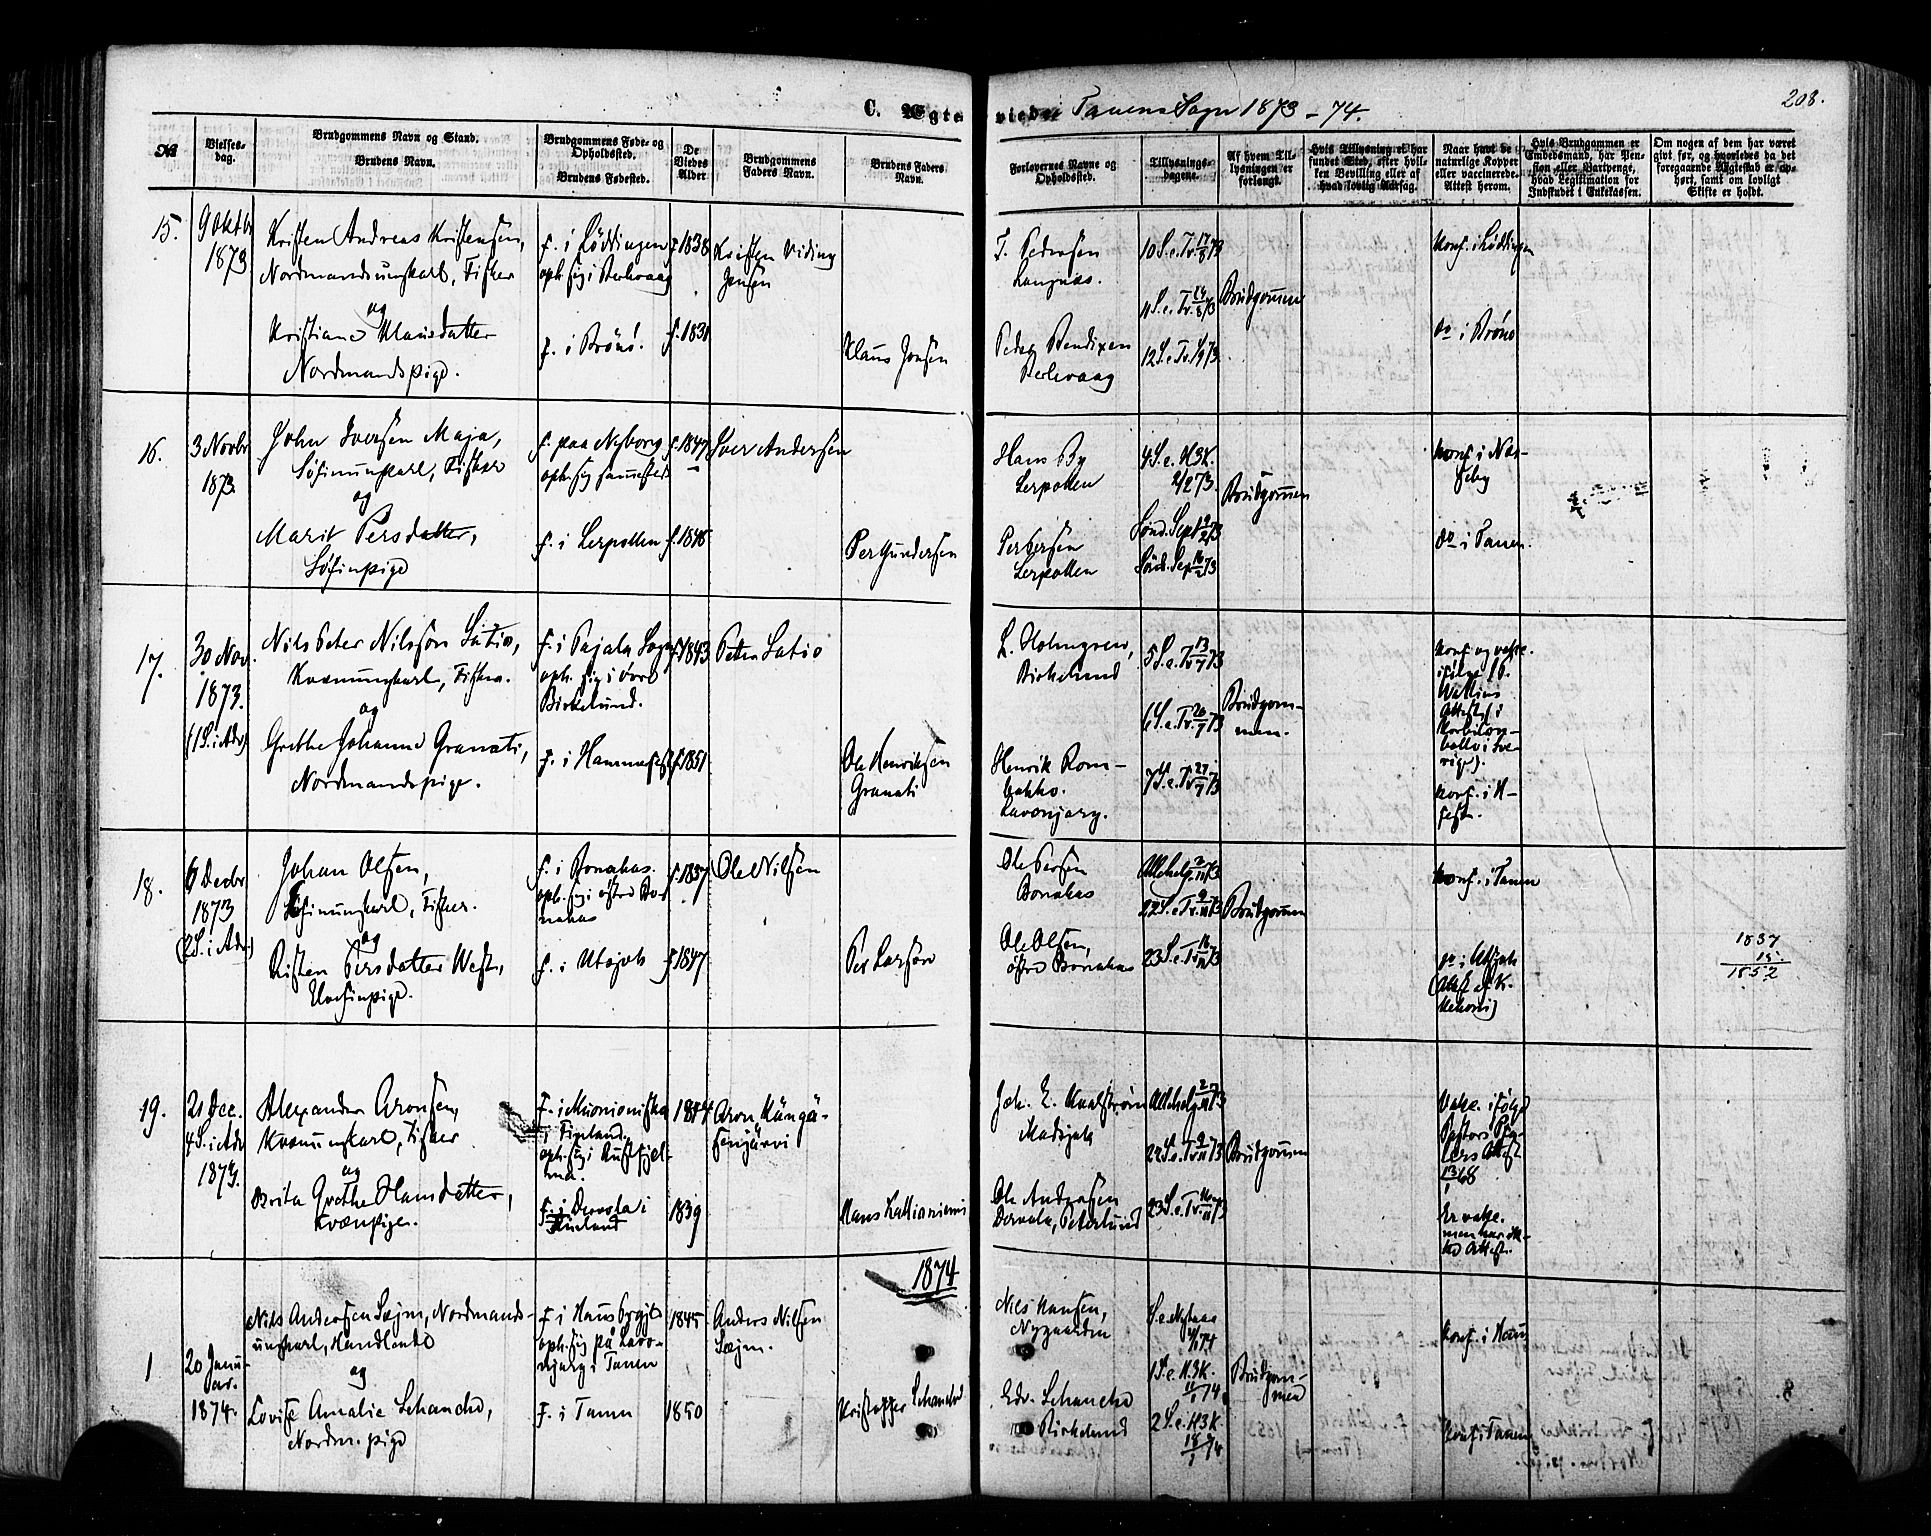 C. Ægteviede Tanens Sogn 1873–74.
208.
No
Vielses-
dag.
Brudgommens Navn og Stand.
Brudens Navn.
Brudgommens Føde- og
Opholdssted.
Brudens Fødested.
De
Viedes
Alder
Brudgommens
Faders Navn.
Brudens Faders
Navn.
Forlovernes Navne og
Opholdssted.
Tillysnings-
dagene.
Af hvem Til-
lysningen er
forlangt.
Hvis Tillysning ei har
fundet Sted, efter hvil-
ken Bevilling eller af
hvad lovlig Aarsag.
Naar havt de
naturlige Kopper
eller vaccinerede-
Attest herom.
Hvis Brudgommen er
Embedsmand, har Pen-
sion eller Vartpenge,
hvad Legitimation for
Indskudet i Enkekassen.
Om nogen af dem har været
givt før, og hvorledes da det
foregaaende Ægteskab er op-
hørt, samt om lovligt
Skifte er holdt.
15.
9 Oktbr
1873
Kristen Andreas Kristensen,
Nordmandsungkarl, Fisker
og
Kristiane Klausdatter
Nordmandspige.
f. i Löddingen
oph. sig i Berlevaag
f. i Brönö.
f. 1838
f. 1831
Kristen Viding
Jensen
Klaus Jonsen
T. Pedersen
Langnes.
Peder Bendixen
Berlevaag
10 S.e.Tr. 17/8 73
11 S.e.Tr. 24/8 73
12 S.e.Tr. 73
Brudgommen
Konf. i Löddingen
do i Brönö
16.
3 Novbr
1873.
John Iversen Maja,
Söfinungkarl, Fisker
og
Marit Persdatter,
Söfinpige
f. paa Nyborg
oph. sig sammesteds
f. i Lerpollen
f. 1847
f. 1848
Iver Andersen
Per Gundersen
Hans By
Lerpollen
Per Persen
Lerpollen
4 S. e. H3K.
2/2 73.
Sönd. Sept 9/2 73
Sönd. Sep 16/2 73
Brudgommen
Konf. i Nes-
seby
do i Tanen.
17.
30 Nov.
1873.
(1 S. i Adv)
Nils Peter Nilssen Satio,
Kvænungkarl, Fisker.
og
Grethe Johanne Granati,
Nordmandspige.
f. i Pajala Sogn
oph. sig i övre
Birkelund.
f. i Hammerfest
f. 1843
f. 1851
Peter Satio
Ole Henriksen
Granati
L. Holmgren,
Birkelund
Henrik Rom-
bakko.
Lavonjarg.
5 S.e.Tr 13/7 73
6 S.e.Tr 20/7 73
7 S.e.Tr 27/7 73
Brudgom-
men.
Konf. og vakc.
ifölge P.
Wallins
Attest i
Korbilom-
bollo i Sve-
rige).
Konf. i H-
fest.
18.
6 Decbr
1873
(2 S. i Adv.)
Johan Olsen,
Söfinungkarl, Fisker.
og
Risten Persdatter West,
Elvefinpige.
f. i Bonakas.
oph. sig i östre Bo-
nakas
f. i Utsjok
f. 1837
f. 1847
Ole Nilsen
Per Larsen
Ole Persen
Bonakas
Ole Olsen,
östre Bonakas
Allehelg. 2/11 73
22 S.e.Tr. 9/11 73
23 S.e.Tr 16/11 73
Brudgommen
Konf. i Tanen
do i Utsjok
(Att. af K.
Mehoni)
1837
15.
1852
19.
21 Dec.
4 S. i Adv
1873.
Alexander Aronsen,
Kvænungkarl, Fisker
og
Brita Grethe Hansdatter,
Kvænpige.
f. i Muonioniska
i Finland,
oph. sig i Rustfjel-
ma.
f. i Dervola i
Finland
1839
Aron Kängä-
senjärvi
Hans Kallioniemi
Joh. E. Kvalström
Madsjok
Ole Andersen
Dervola, Peterlund
Allehelg. 2/11 73
22 S.e.Tr 9/11 73
23 S.e.Tr 16/11 73
Brudgommen
Vakc. ifölge
Pastors
Attest
13/1 68
Er vakc.
men har ik-
ke Attest.
1874
1
20 Janu-
ar.
1874.
Nils Andersen Sejm, Nordmands-
ungkarl, Handlende
og
Lovise Amalie Schanche,
Nordm. pige
f. i Haus Prgjld
oph. sig på Lavo-
njarg i Tanen
f. i Tanen
1845
1850
Anders Nilsen
Sejm.
Kristoffer Schanche
Nils Hansen,
Nygaarden
Edv. Schanche
Birkelund
S. e. Nytaar
4/1 74
1 S. e. H3K.
11/1 74
2 S. e. H3K.
18/1 74
Brudgom-
men
Konf. i Haus
Konf. i Tanen